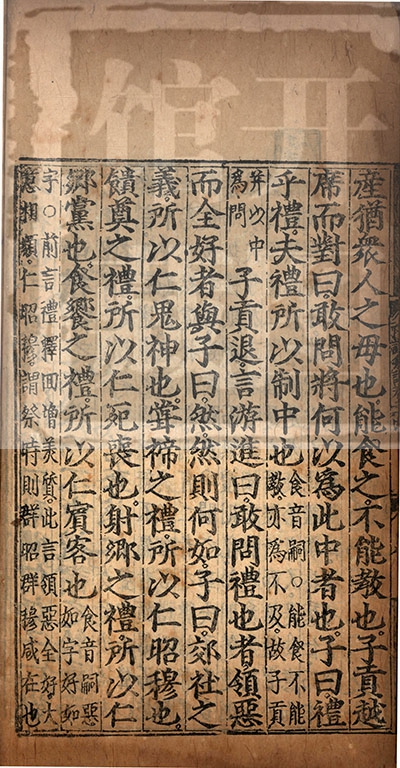 產猶衆人之母也能食之不能教也子貢越
席而對曰敢問將何以為此中者也子曰禮
乎禮夫禮所以制中也
食音嗣○能食不能
教亦為不及故子貢
并以中
為問
子貢退言游進曰敢問禮也者領惡
而全好者與子曰然然則何如子曰郊社之
義所以仁鬼神也甞禘之禮所以仁昭穆也
饋奠之禮所以仁死喪也射鄉之禮所以仁
鄉黨也食饗之禮所以仁賓客也
食音嗣惡
如字好如
字○前言禮釋回增美質此言領惡全好大
意相類仁昭穆謂祭時則群昭群穆咸在也